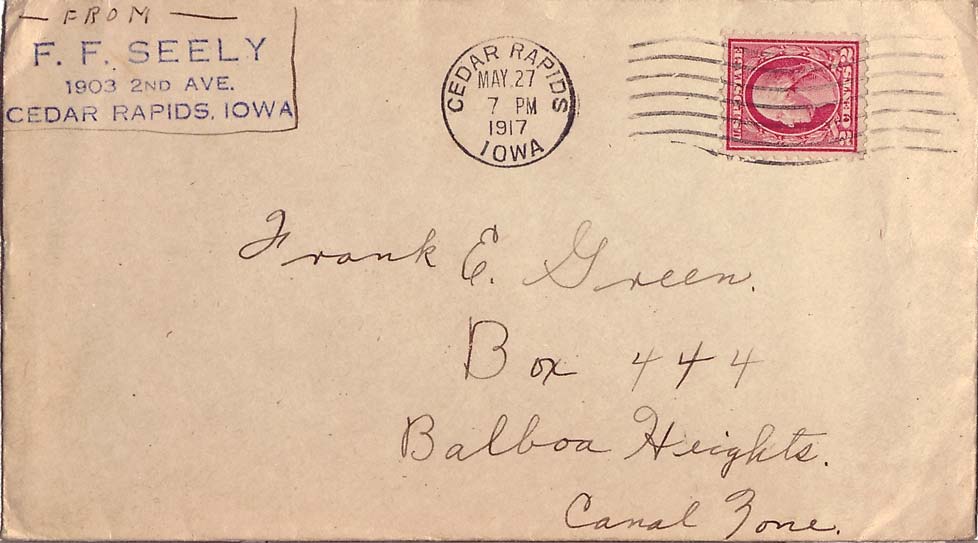 — FROM —
F. F. SEELY
1903 2ND AVE.
CEDAR RAPIDS, IOWA
CEDAR RAPIDS
MAY 27
7 PM
1917
IOWA
Frank E. Green.
Box 444
Balboa Heights.
Canal Zone.